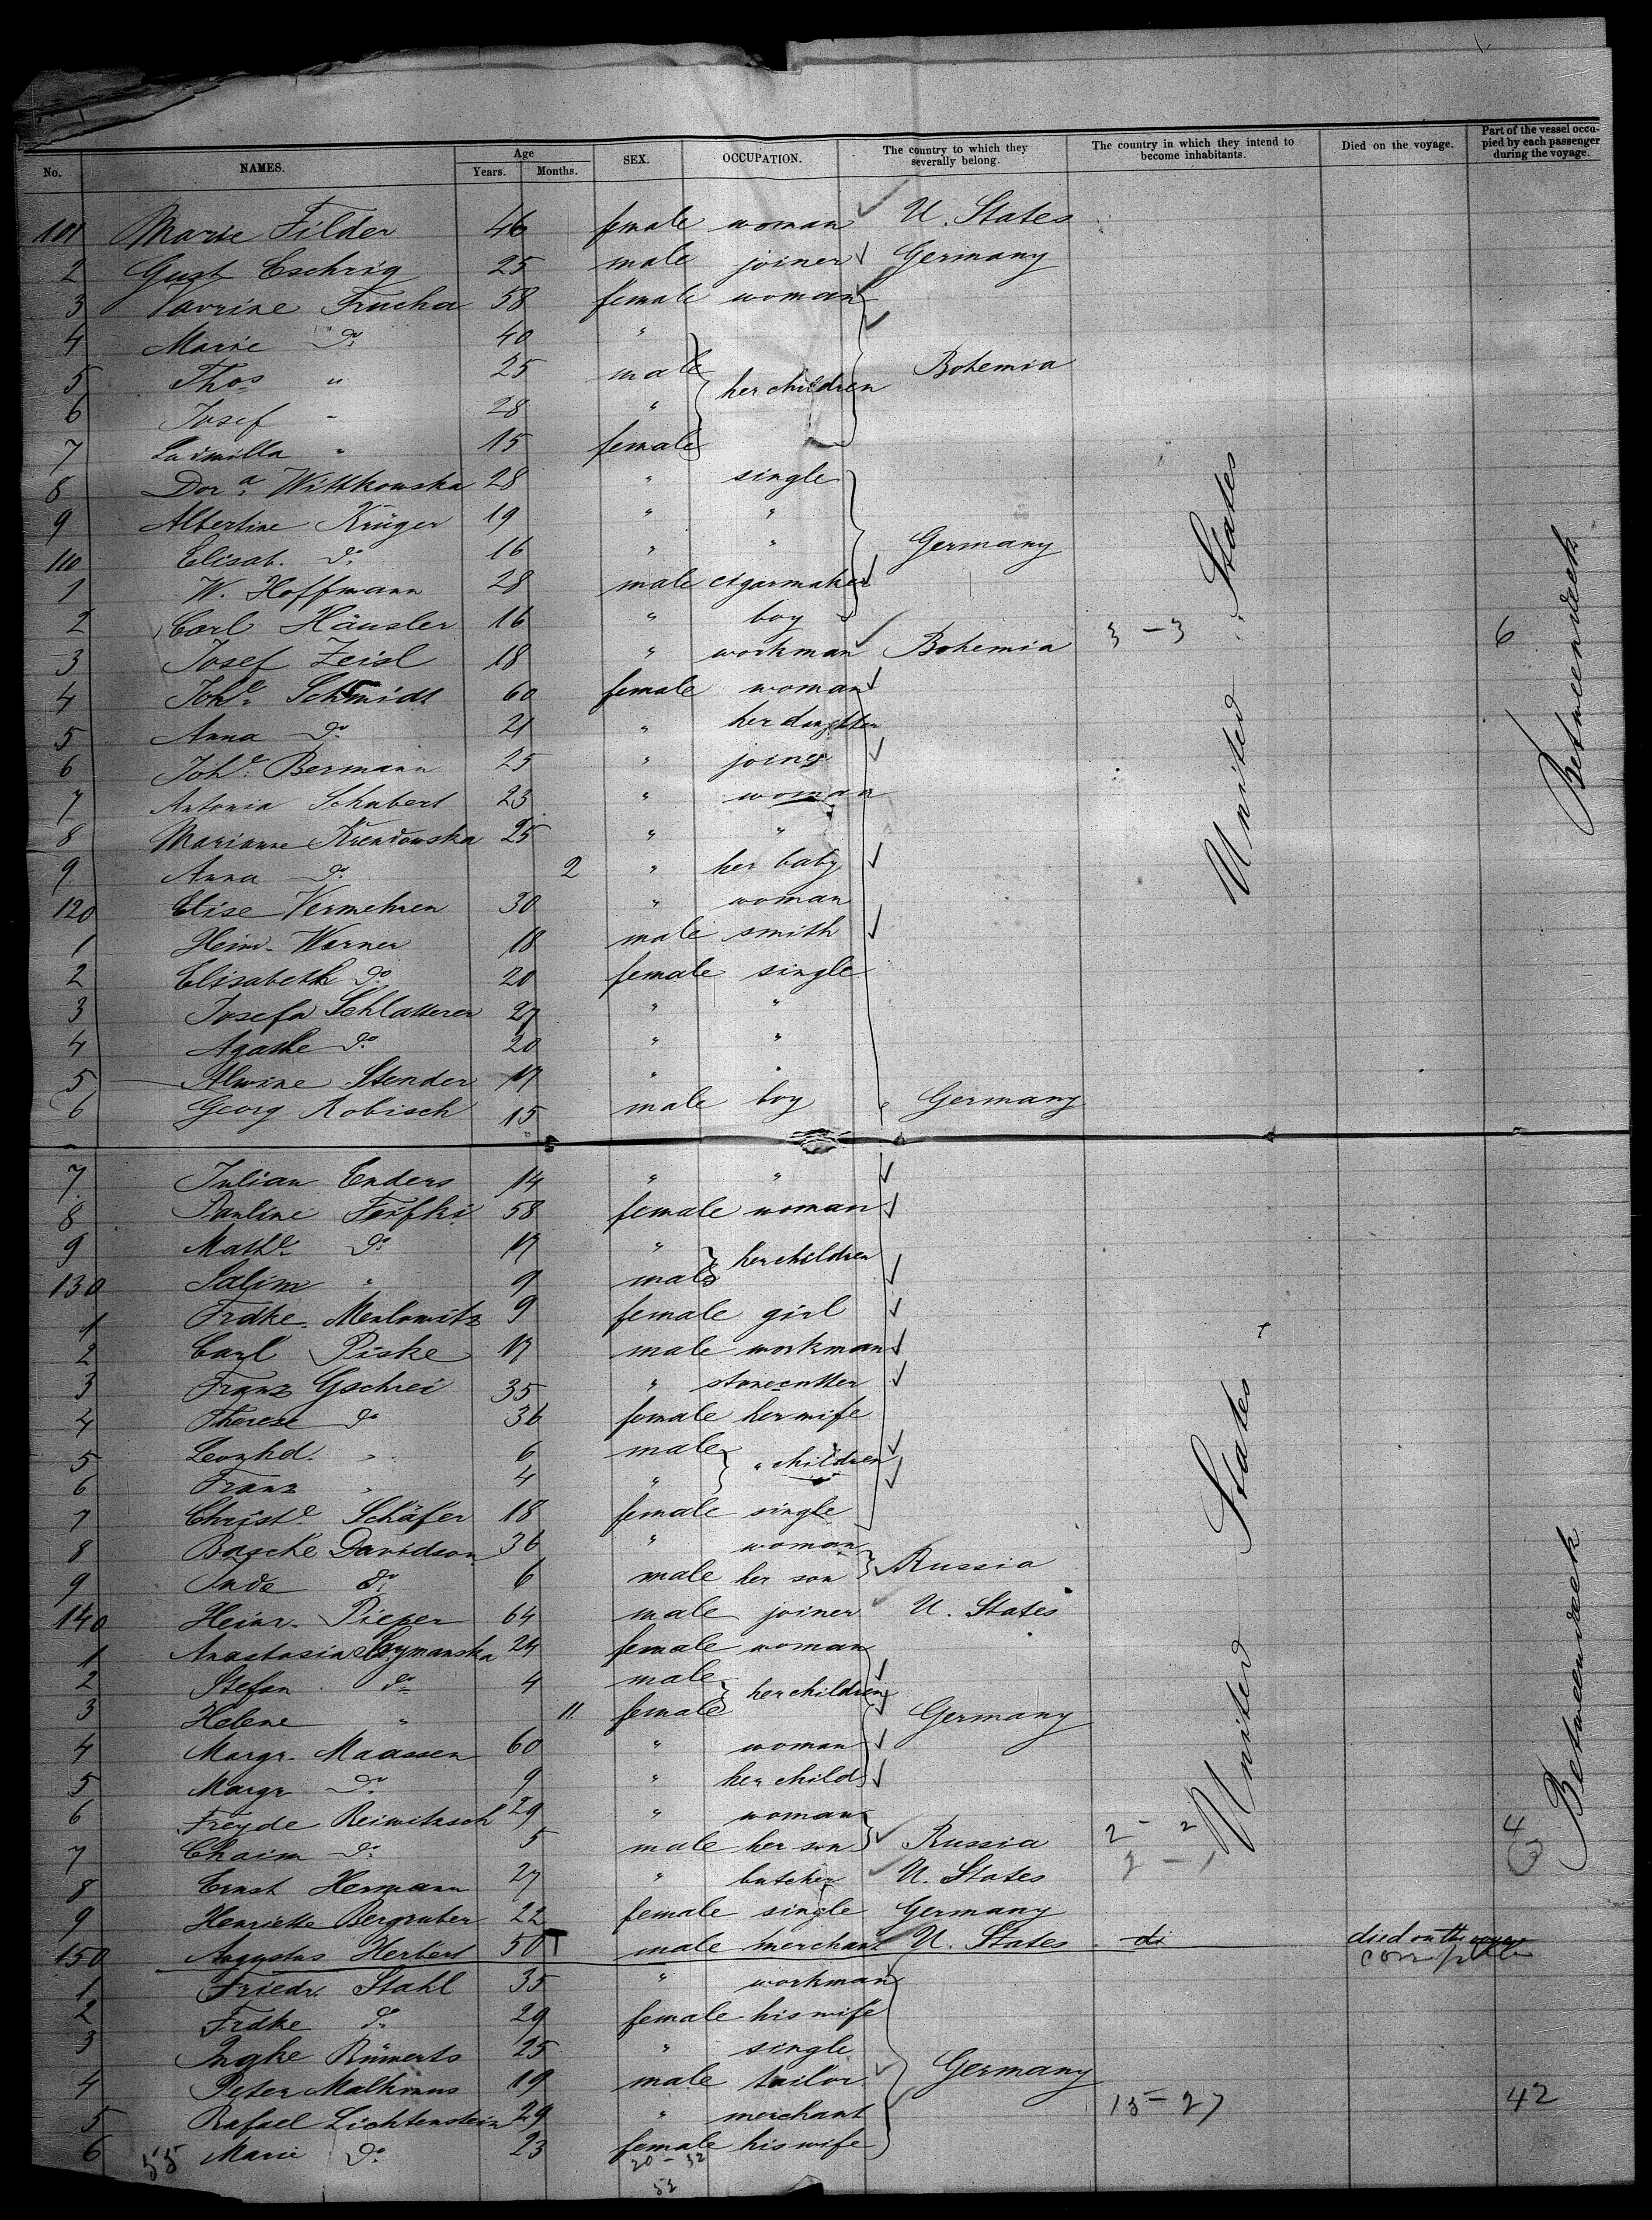 No. NAMES. Age Years. Months. SEX. OCCUPATION. The country to which they severally belong. The country in which they intend to become inhabitants. Died on the voyage. Part of the vessel occupied by each passenger during the voyage.
101 Marie Filder 46 female woman U. States
2 Gust Eschrig 25 male joiner Germany
3 Vavrine Trucha 58 female woman
4 Marie do 40 "
5 Thos " 25 male her children Bohemia
6 Josef " 28 "
7 Ludmilla " 15 female
8 Dora Wittkowska 28 " single
9 Albertine Krüger 19 " "
110 Elisab. do 16 " " Germany
1 W. Hoffmann 28 male cigarmaker
2 Carl Häusler 16 " boy
3 Josef Zeisl 18 " workman Bohemia 3 - 3 6
4 Johe Schmidt 60 female woman
5 Anna do 21 " her daughter
6 Johe Bermann 25 " joiner
7 Antonia Schubert 23 " woman
8 Marianne 25 " "
9 Anna do 2 " her baby
120 Elise Vermehren 30 " woman
1 Heinr. Werner 18 male smith
2 Elisabeth do 20 female single
3 Josefa Schlatterer 27 " "
4 Agathe do 20 " "
5 Alwine Stender 17 " "
6 Georg Robisch 15 male boy Germany
United States
Betweendeck
7 Julian Enders 14 " "
8 Pauline 58 female woman
9 Mathe do 17 " her children
130 Salim " 9 male
1 Frdke. Merlowitz 9 female girl
2 Carl Piske 17 male workman
3 Franz Gschrei 35 " stonecutter
4 Therese do 36 female her wife
5 Leonhd. " 6 male " children
6 Franz " 4 "
7 Christe Schäfer 18 female single
8 Basche Davidson 36 " woman Russia
9 Jude do 6 male her son
140 Heinr. Pieper 64 male joiner U. States
1 Anastasia Szymanska 24 female woman
2 Stefan do 4 male her children
3 Helene " 11 female Germany
4 Margr. Maassen 60 " woman
5 Margr do 9 " her child
6 Freyde Reiwitzsch 29 " woman
7 Chaim do 5 male her son Russia 2 - 2 4
8 Ernst Hermann 27 " butcher U. States 2 - 1 3
9 Henriette Bergruber 22 female single Germany
150 Augustus Herbert 50 male merchant U. States do died on the voyage
1 Friedr. Stahl 35 " workman
2 Frdke do 29 female his wife
3 Rümerts 25 " single
4 Peter Malkmus 19 male tailor Germany
5 Rafael Lichtenstein 29 " merchant 15 - 27 42
6 Marie do 23 female his wife
United States
Betweendeck
55 20 - 32
52